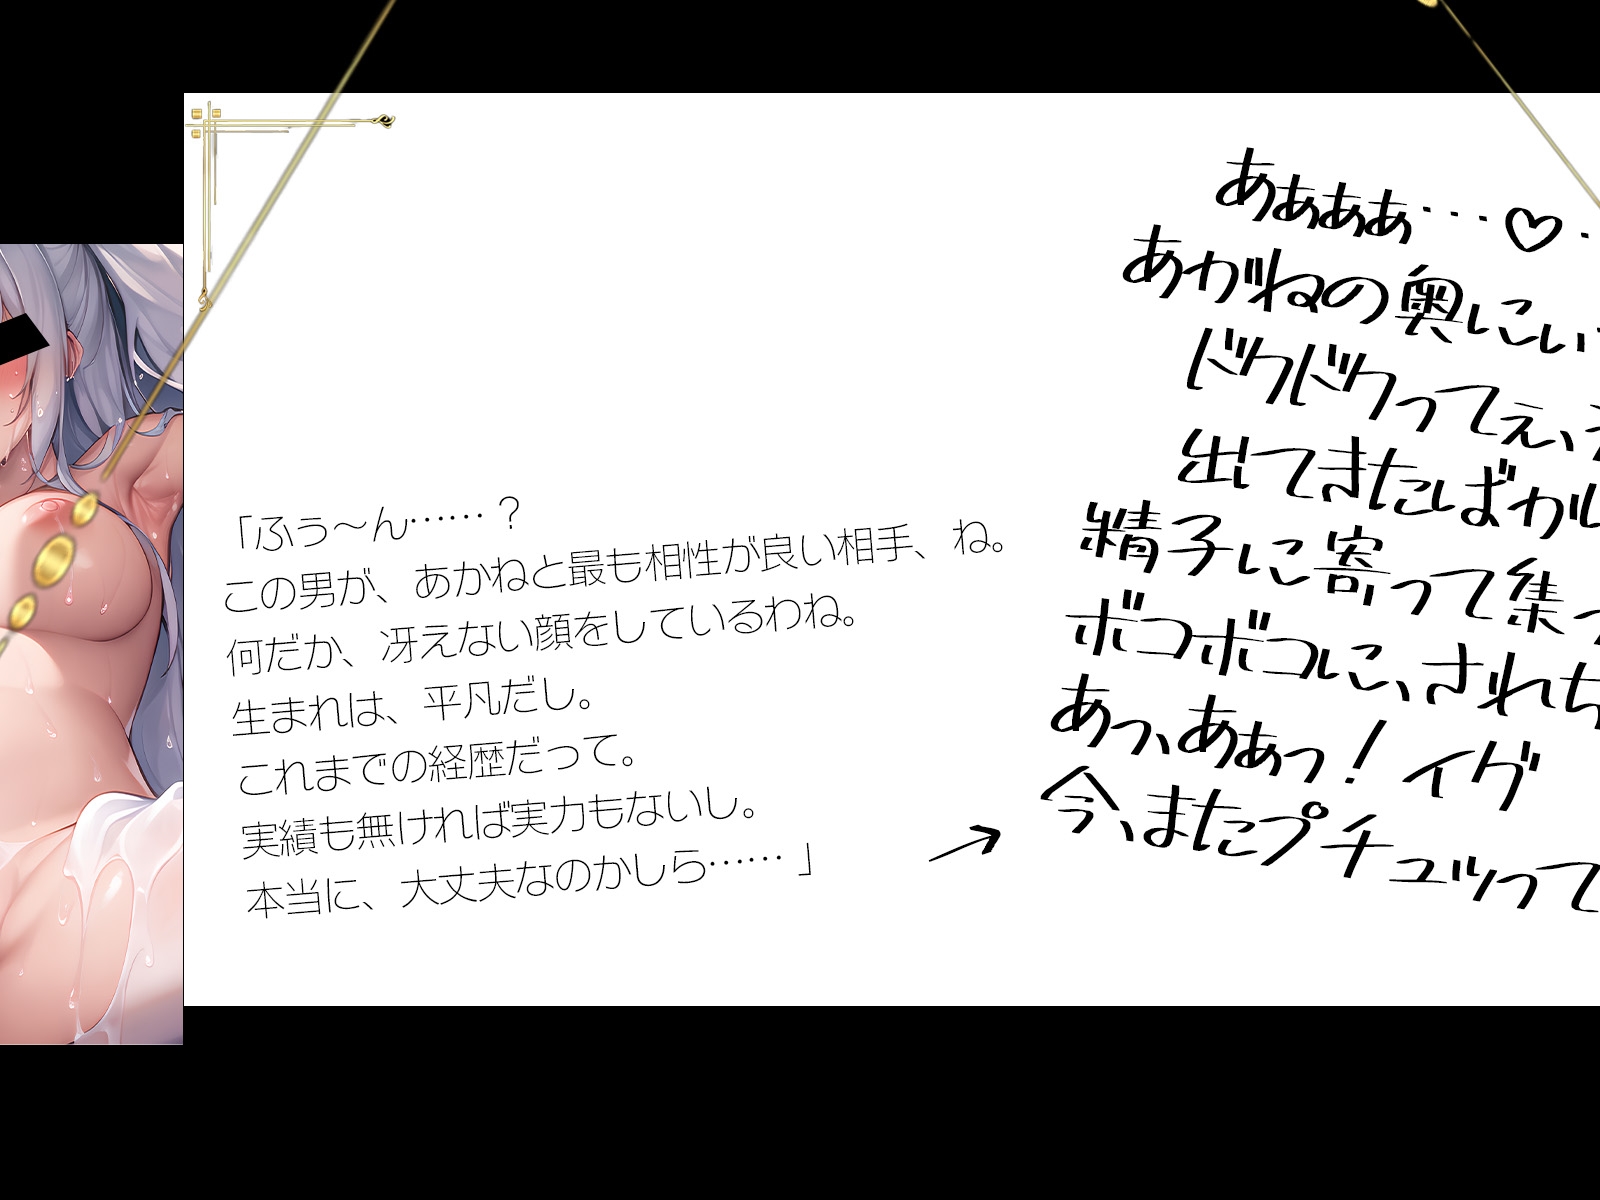 「ふぅ～ん……？
この男が、あかねと最も相性が良い相手、ね。
何だか、冴えない顔をしているわね。
生まれは、平凡だし。
これまでの経歴だって。
実績も無ければ実力もないし。
本当に、大丈夫なのかしら……」
→
ああああ…♡
あかねの奥にい
ドクドクってぇ、
出てきたばかり
精子に寄って集っ
ボコボコに、されち
あっ、あぁっ！イグ
今、またプチュッって